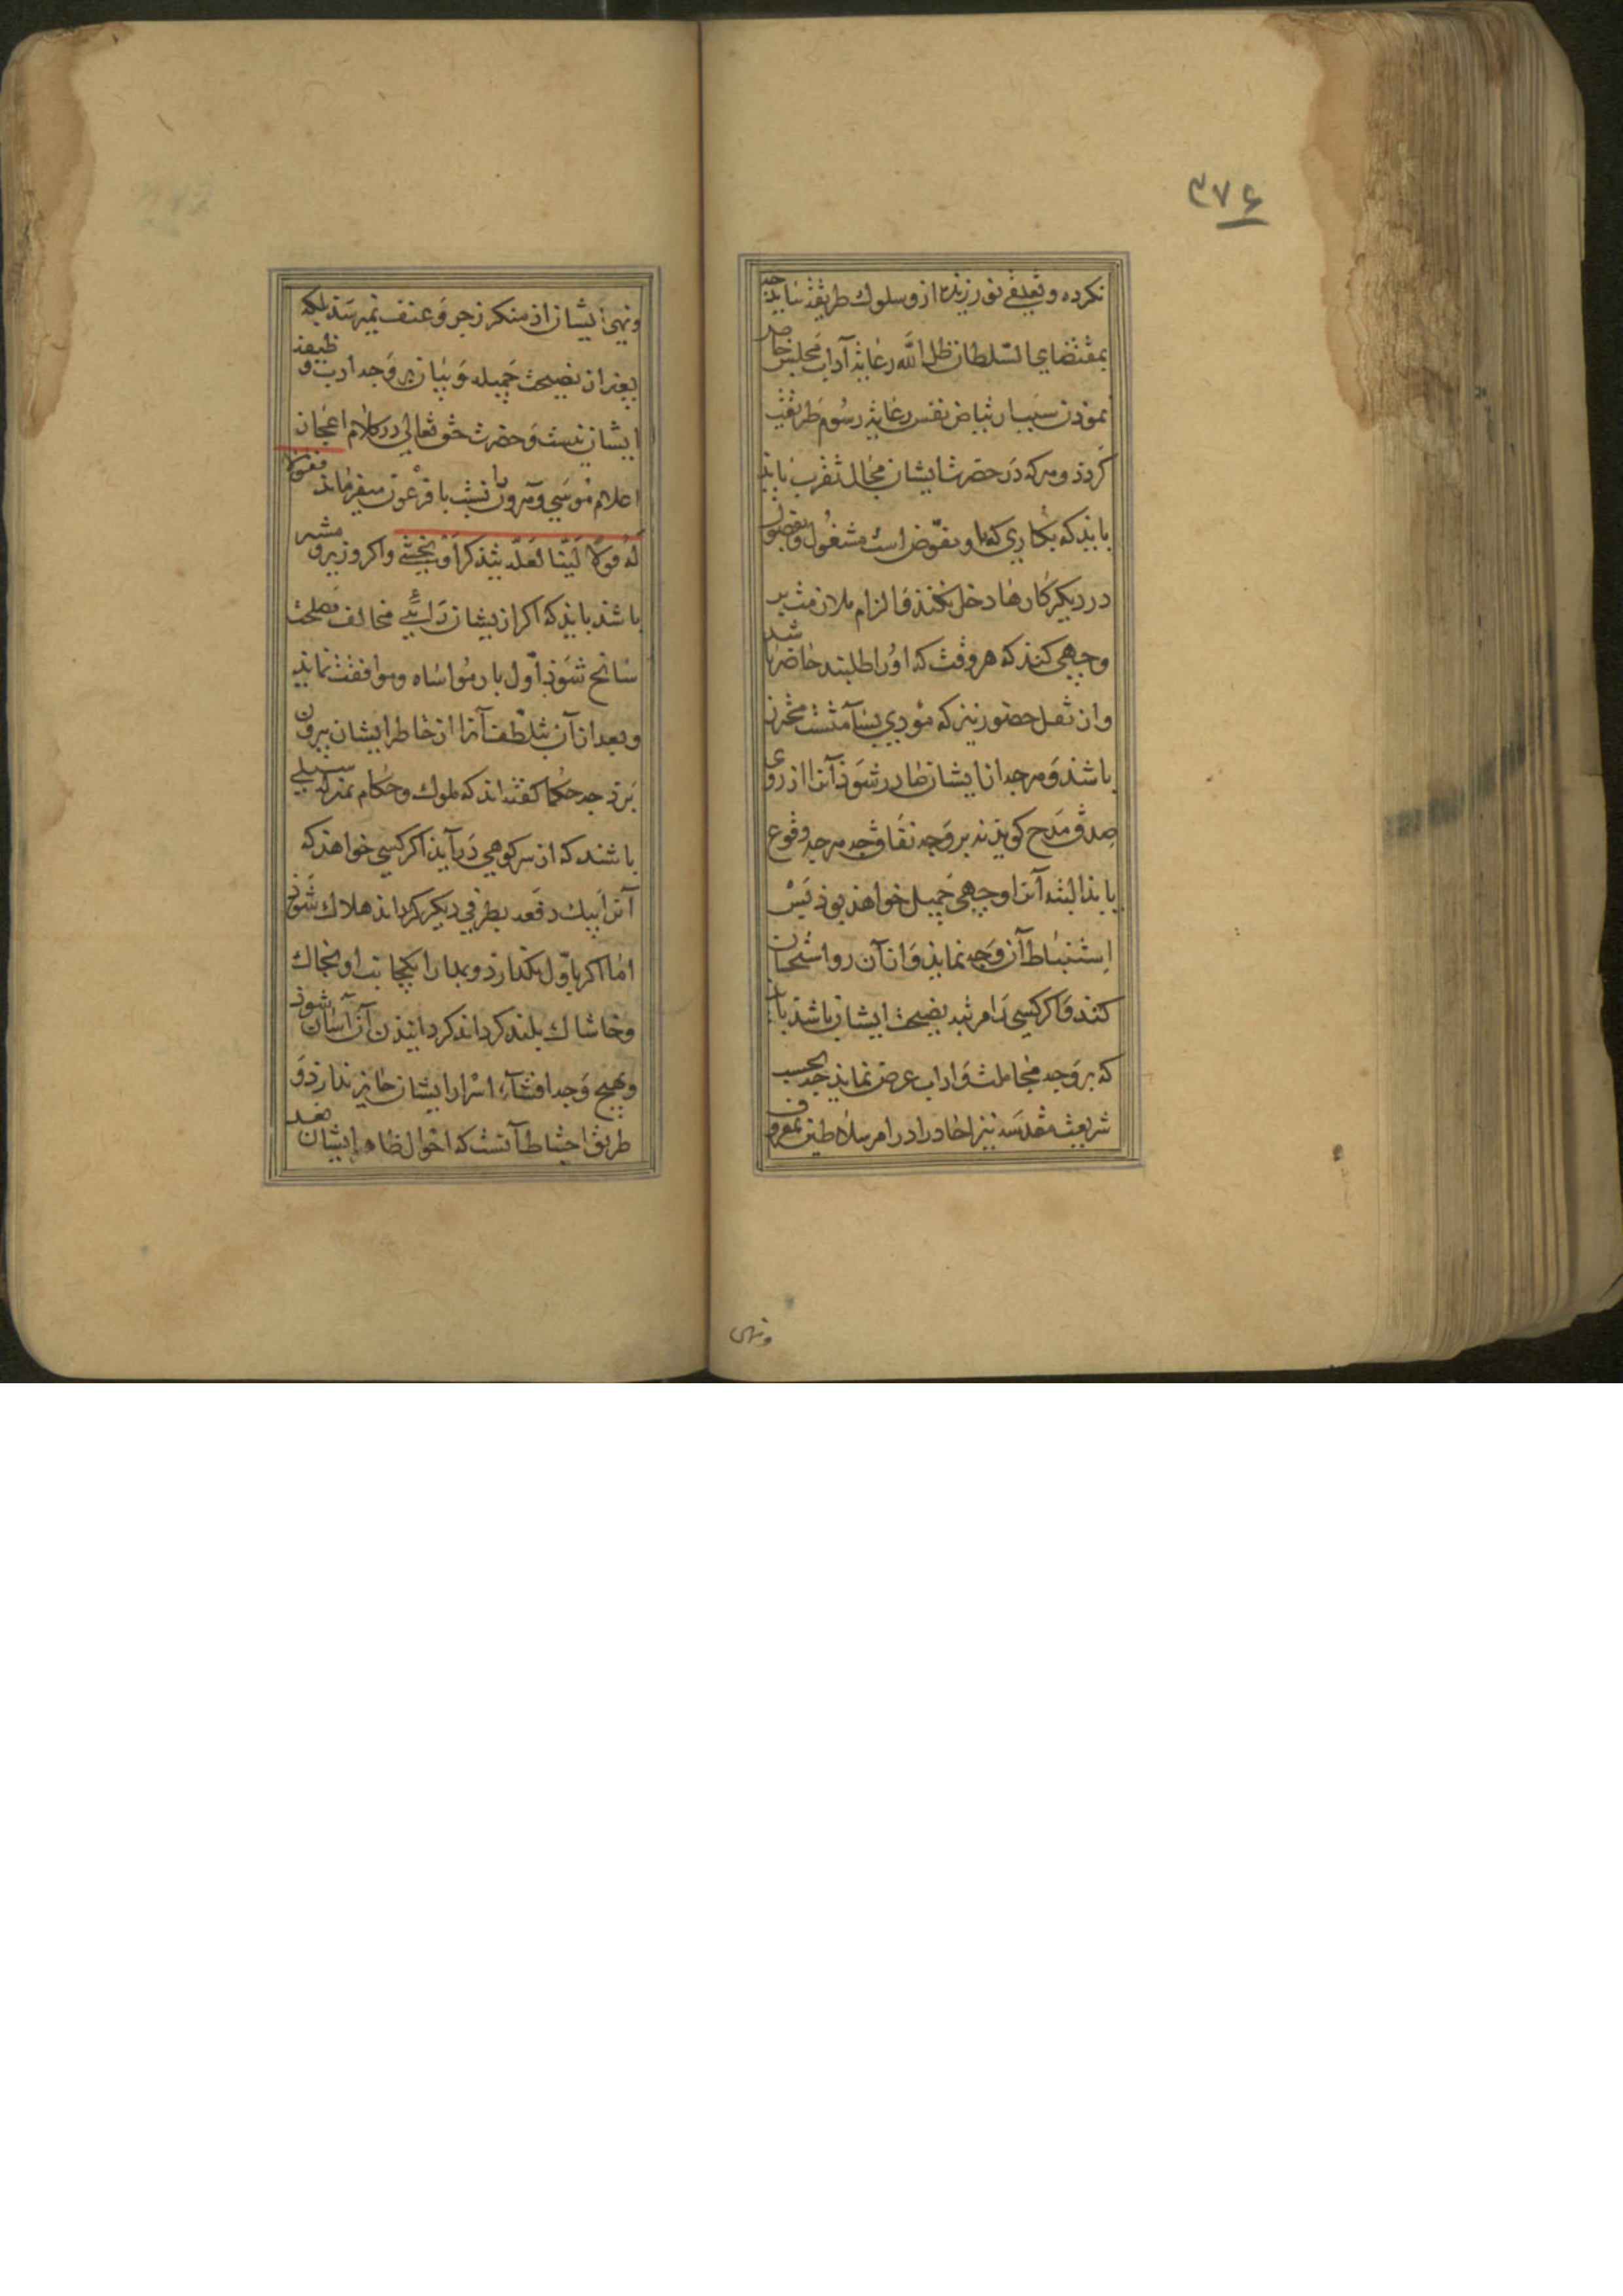 ۳۷۶
نکرده و تعدی نورزیده از و سلوك طریقه نباید چه
بمقتضای السلطان ظل الله رعایة آداب مجلس خاصه
نمودن سبب ارتیاض نفس رعایة رسوم طریقت
گردد و هر که در حضرت ایشان مجال تقرب یابد
باید که بکاری که باو مفوض است مشغول و بفضول
در دیکر کارها دخل نکند و الزام ملازمت بر
وجهی کند که هر وقت که اورا طلبند حاضر باشد
و از ثقل حضور نیز که مؤدی بسآمتست محترز
باشد و هر چه از ایشان صادر شود آنرا از روی
صدق مدح کوید نه بر وجه نفاق چه هر چه وقوع
یابد البته آنرا وجهی جمیل خواهد بود پس
استنباط آن وجه نماید و از آن رو استحسان
کند و اکر کسی را مرتبه نصیحت ایشان باشد باید
که بر وجه مجاملت و اداب عرض نماید چه بحسب
شریعت مقدسه نیز احاد را در امر سلاطین بمعروف
ونهی
ونهی ایشان از منکر زجر و عنف نمیرسد بلکه
بغیر از نصیحت جمیله و بیان بر وجه ادب وظیفه
ایشان نیست و حضرت حق تعالی در کلام اعجاز
اعلام موسی و هرون را نسبت با فرعون میفرماید فقولا
له قولا لینا لعله یتذکر او یخشی و اکر وزیر و مشیر
باشد باید که اکر از یشان رایی مخالف مصلحت
سانح شود اول بار مواساه و موافقت نماید
و بعد از آن بتلطف آنرا از خاطر ایشان بیرون
برد چه حکما کفته اند که ملوك و حکام بمنزله سیلی
باشند که از سر کوهی درآید اکر کسی خواهد که
آنرا بیك دفعه بطرفی دیکر کرداند هلاك شود
اما اکر باول بکذارد و بمدارا یکجانب او بخاك
وخاشاك بلند کرداند کردانیدن آن آسان شود
و بهیچ وجه افشآء اسرار ایشان جایز ندارد و
طریق احتیاط آنست که احوال ظاهر ایشان